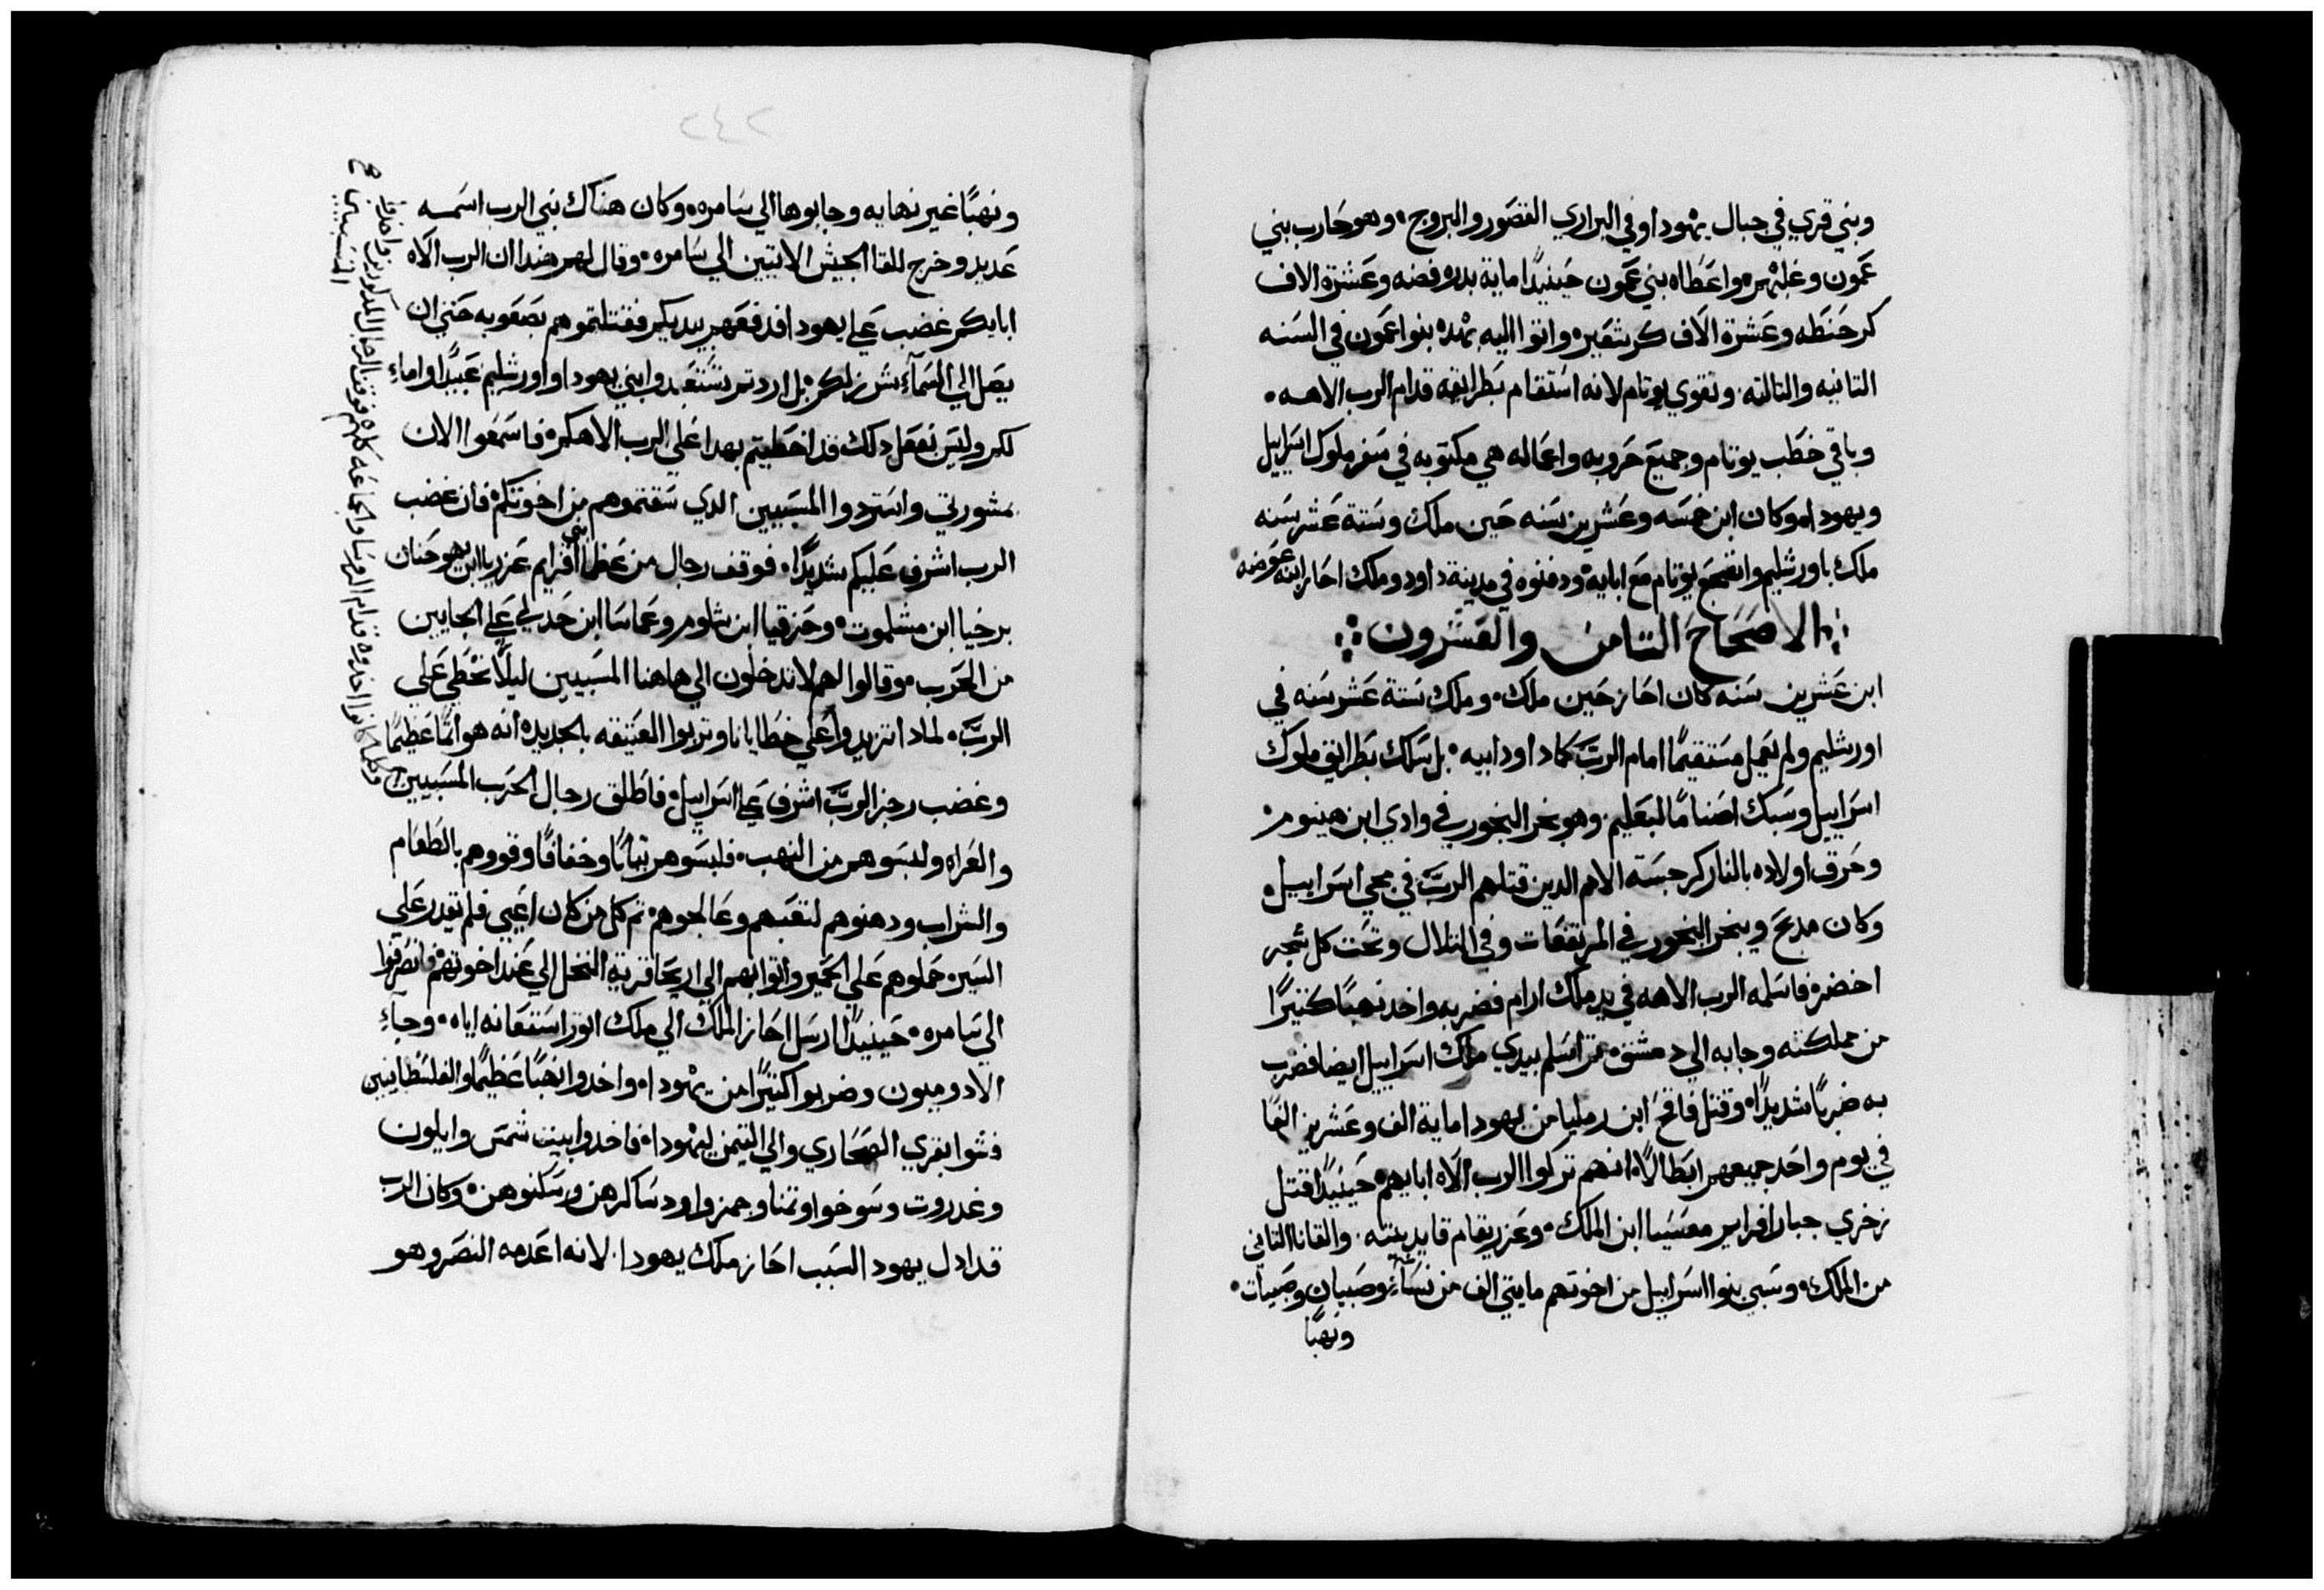 وبني قري في جبال يهودا وفي البراري القصور والبروج ۰ وهو حارب بني
عمون وغلبهم ۰ واعطاه بني عمون حينيدًا ماية بدره فضه وعشرة الاف
كر حنطه وعشرة الاف كر شعير ۰ واتوا اليه بهده بنوا عمون في السنه
التانيه والتالته ۰ وتقوي يوتام لانه استقام بطرايقه قدام الرب الاهه ۰
وباقي خطب يوتام وجميع حروبه واعماله هي مكتوبه في سفر ملوك اسراييل
ويهودا ۰ وكان ابن خمسه وعشرين سنه حين ملك وستة عشر سنه
ملك باورشليم واضجع يوتام مع ابايه ۰ ودفنوه في مدينة داود وملك احاز ابنه عوضه ۰
الاصحاح التامن والعشرون
ابن عشرين سنه كان احاز حين ملك ۰ وملك ستة عشر سنه في
اورشليم ولم يعمل مستقيمًا امام الربّ كما داود ابيه ۰ بل سلك بطرايق ملوك
اسراييل وسبك اصنامًا لبعليم ۰ وهو بخر البخور في وادي ابن هينوم ۰
وحرق اولاده بالنار كرجسة الامم الدين قتلهم الربّ في مجي اسراييل ۰
وكان مدبح ويبخر البخور في المرتفعات وفي التلال وتحت كل شجره
اخضره فاسلمه الرب الاهه في يد ملك ارام فضربه واخد نهبًا كثيرًا
من مملكته وجابه الي دمشق ۰ تم اسلم بيدي ملك اسراييل ايضا فضرب
به ضربًا شديدًا ۰ وقتل فاقح ابن رمليا من يهودا ماية الف وعشرين الفًا
في يوم واحد جميعهم ابطالًا ۰ انهم تركوا الرب الاه ابايهم ۰ حينيدًا قتل
زخري جبار افرايم معسيا ابن الملك ۰ وعزريقام قايد بيته ۰ والقانا التاني
من الملك ۰ وسبي بنوا اسراييل من اخوتهم مايتي الف من نساء وصبيان وصبيات ۰
ونهبًا
٢٤٢
ونهبًا غير نهايه وجابوها الي سامره ۰ وكان هناك نبي الرب اسمه
عديد وخرج للقا الجيش الاتيين الي سامره ۰ وقال لهم هدا ان الرب الاه
ابايكم غضب علي يهودا فدفعهم بيديكم فقتلتموهم بصعوبه حتي ان
يصل الي السماء شركم ۰ بل اردتم تستعبدوا بني يهودا واورشليم عبيدًا واماءٍ
لكم وليس نفعل دلك قد اخطيتم بهدا علي الرب الاهكم ۰ فاسمعوا الان
مشورتي واستردوا المسبيين الدي سقتموهم من اخوتكم فان غضب
الرب اشرف عليكم شديدًا ۰ فوقف رجال من عظما بني افرايم عزريا ابن يهوحنان
برخيا ابن مشلموت ۰ وحزقيا ابن شلوم وعماسا ابن حدلي علي الجايين
من الحرب ۰ وقالوا لهم لا تدخلون الي هاهنا المسبيين ليلًا نخطي علي
الربّ ۰ لمادا تزيدوا علي خطايانا وتربوا العتيقه بالجديده انه هو اتمًا عظيمًا
وغضب رجز الربّ اشرف علي اسراييل ۰ فاطلق رجال الحرب المسبيين
والعراه ولبسوهم من النهب ۰ فلبسوهم تيابًا وخفافًا وقووهم بالطعام
والشراب ودهنوهم لتعبهم وعالجوهم ۰ تم كل من كان اعيي فلم تقدر علي
السير ۰ حملوهم علي الحمير واتوا بهم الي اريحا قرية النخل الي عند اخوتهم ۰ فانصرفوا
الي سامره ۰ حينيدًا ارسل احاز الملك الي ملك اتور استعانه اياه ۰ وجاءِ
الادوميون وضربوا كثيرًا من يهودا ۰ واخدوا نهبًا عظيمًا والفلسطانيين
فشوا بقري الصحاري والي التيمن ليهودا ۰ فاخدوا بيت شمس وايلون
وغدروت وسوخوا وتمنا وجمزوا ودساكرهن وسكنوهن ۰ وكان الرب
قد ادل يهودا لسبب احاز ملك يهودا ۰ لانه اعدمه النصر وهو
وكلما كانوا اخدوه قدام الروسا والجماعه كلهم فوقف الرجال المدكورين واخدوا
المسبيين صح